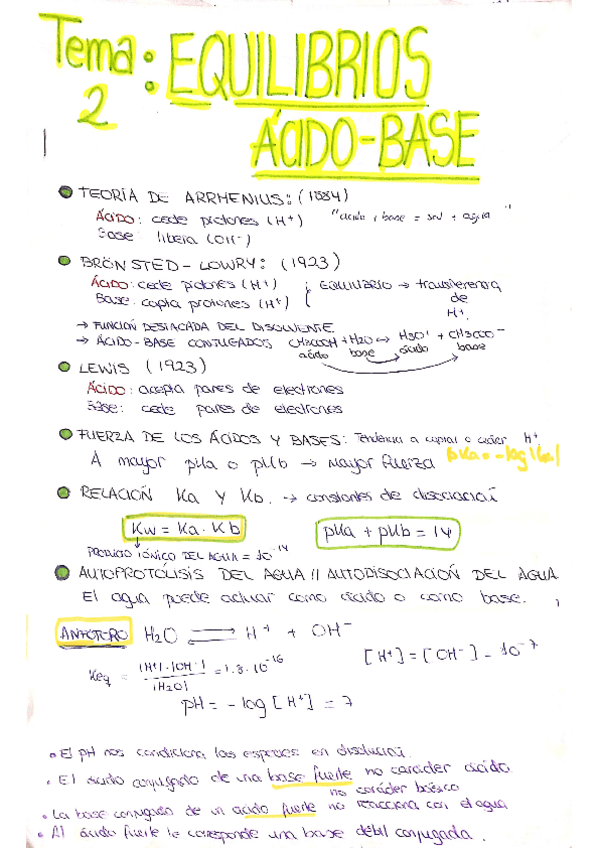 Tema: EQUILIBRIOS
2
ÁCIDO-BASE
TEORÍA DE ARRHENIUS: (1884)
ÁCIDO: cede protones (H⁺) "ácido + base = sal + agua"
Base: libera (OH⁻)
BRÖNSTED-LOWRY: (1923)
ÁCIDO: cede protones (H⁺) EQUILIBRIO → transferencia
Base: capta protones (H⁺) de
H⁺.
→ FUNCIÓN DESTACADA DEL DISOLVENTE
→ ÁCIDO-BASE CONJUGADOS CH3COOH + H2O ↔ H3O⁺ + CH3COO⁻
ácido base ácido base
LEWIS (1923)
ÁCIDO: acepta pares de electrones
Base: cede pares de electrones
FUERZA DE LOS ÁCIDOS Y BASES: Tendencia a captar o ceder H⁺
A mayor pKa o pKb → Mayor fuerza pKa = -log|Ka|
RELACIÓN Ka Y Kb. → constantes de disociació
Kw = Ka · Kb pKa + pKb = 14
PRODUCTO IÓNICO DEL AGUA = 10⁻¹⁴
AUTOPROTÓLISIS DEL AGUA // AUTODISOCIACIÓN DEL AGUA
El agua puede actuar como ácido o como base.
ANFÓTERO H2O ⇌ H⁺ + OH⁻
Keq = |H⁺|·|OH⁻| / |H2O| = 1.3·10⁻¹⁶ [H⁺] = [OH⁻] = 10⁻⁷
pH = -log [H⁺] = 7
El pH nos condiciona las especies en disolució.
El ácido conjugado de una base fuerte no carácter ácido.
no carácter básico
La base conjugada de un ácido fuerte no reacciona con el agua
Al ácido fuerte le corresponde una base débil conjugada.